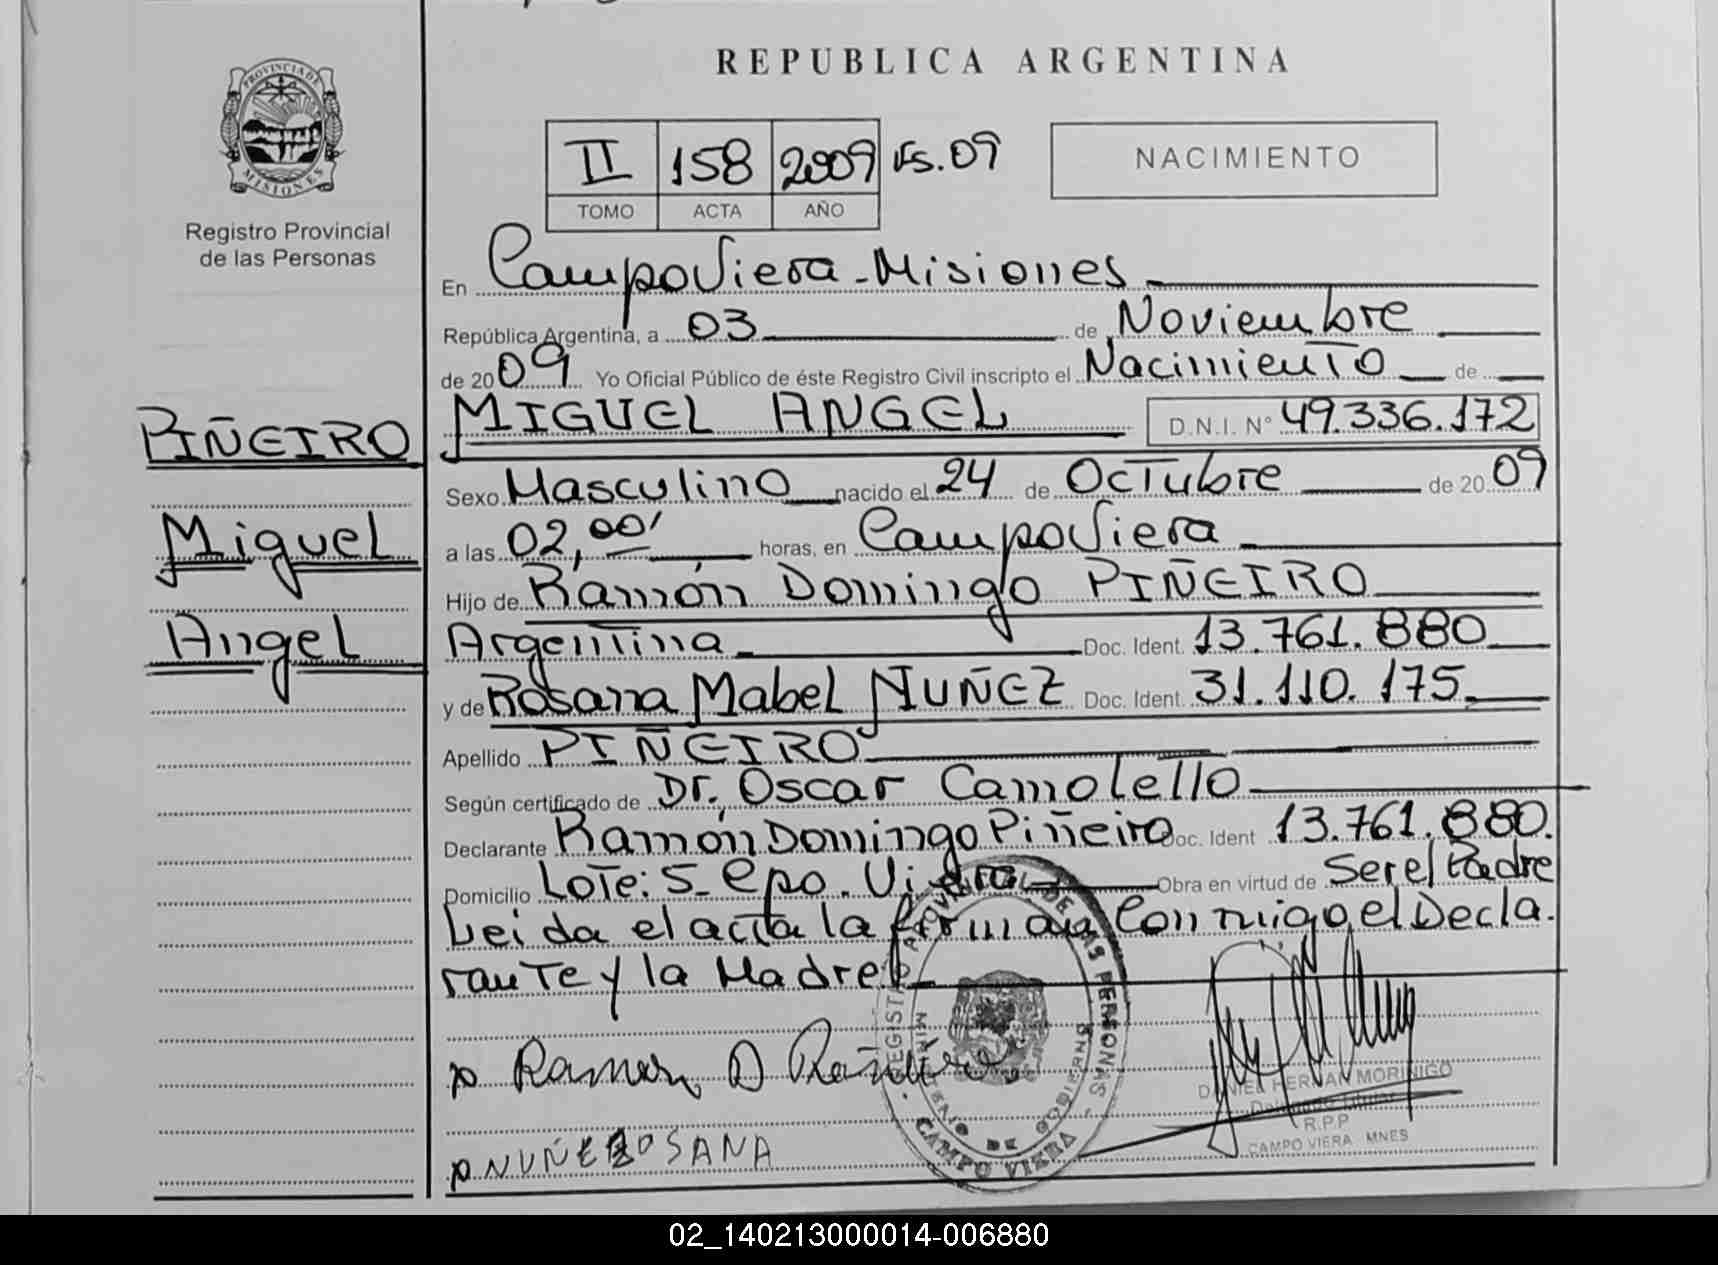 REPUBLICA ARGENTINA
PROVINCIA DE
MISIONES
Registro Provincial
de las Personas
II 158 2009 Fs. 09
TOMO ACTA AÑO
NACIMIENTO
En Campo Viera - Misiones
República Argentina, a 03 de Noviembre
de 2009 Yo Oficial Público de éste Registro Civil inscripto el Nacimiento de
PIÑEIRO
MIGUEL ANGEL D.N.I. N° 49.336.172
Sexo Masculino nacido el 24 de Octubre de 2009
Miguel
a las 02,00' horas, en Campo Viera
Hijo de Ramón Domingo PIÑEIRO
Angel
Argentina Doc. Ident. 13.761.880
y de Rosana Mabel NUÑEZ Doc. Ident. 31.110.175
Apellido PIÑEIRO
Según certificado de Dr. Oscar Camoletto
Declarante Ramón Domingo Piñeiro Doc. Ident 13.761.880.
Domicilio Lote: 5 - Cpo. Viera Obra en virtud de Ser el Padre
Leida el acta la firman Con migo el Decla.
rante y la Madre
REGISTRO PROVINCIAL DE LAS PERSONAS
MINISTERIO DE GOBIERNO
CAMPO VIERA
Ramon D
NUÑEZ ROSANA
DANIEL HERNAN MORINIGO
Delegado Titular
R.P.P
CAMPO VIERA MNES
02_140213000014-006880